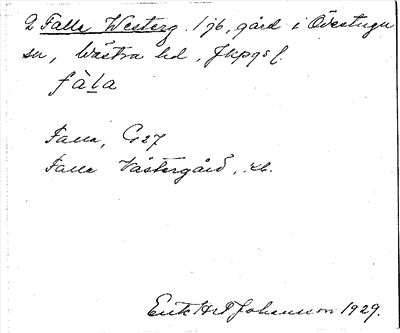 2 Falla Westerg. 1 jb, gård i Örestuga
sn, Västra hd, Jkpgs l.
fàla
Falla, G27
Falla Västergård, ib.
Erik Johansson 1929.